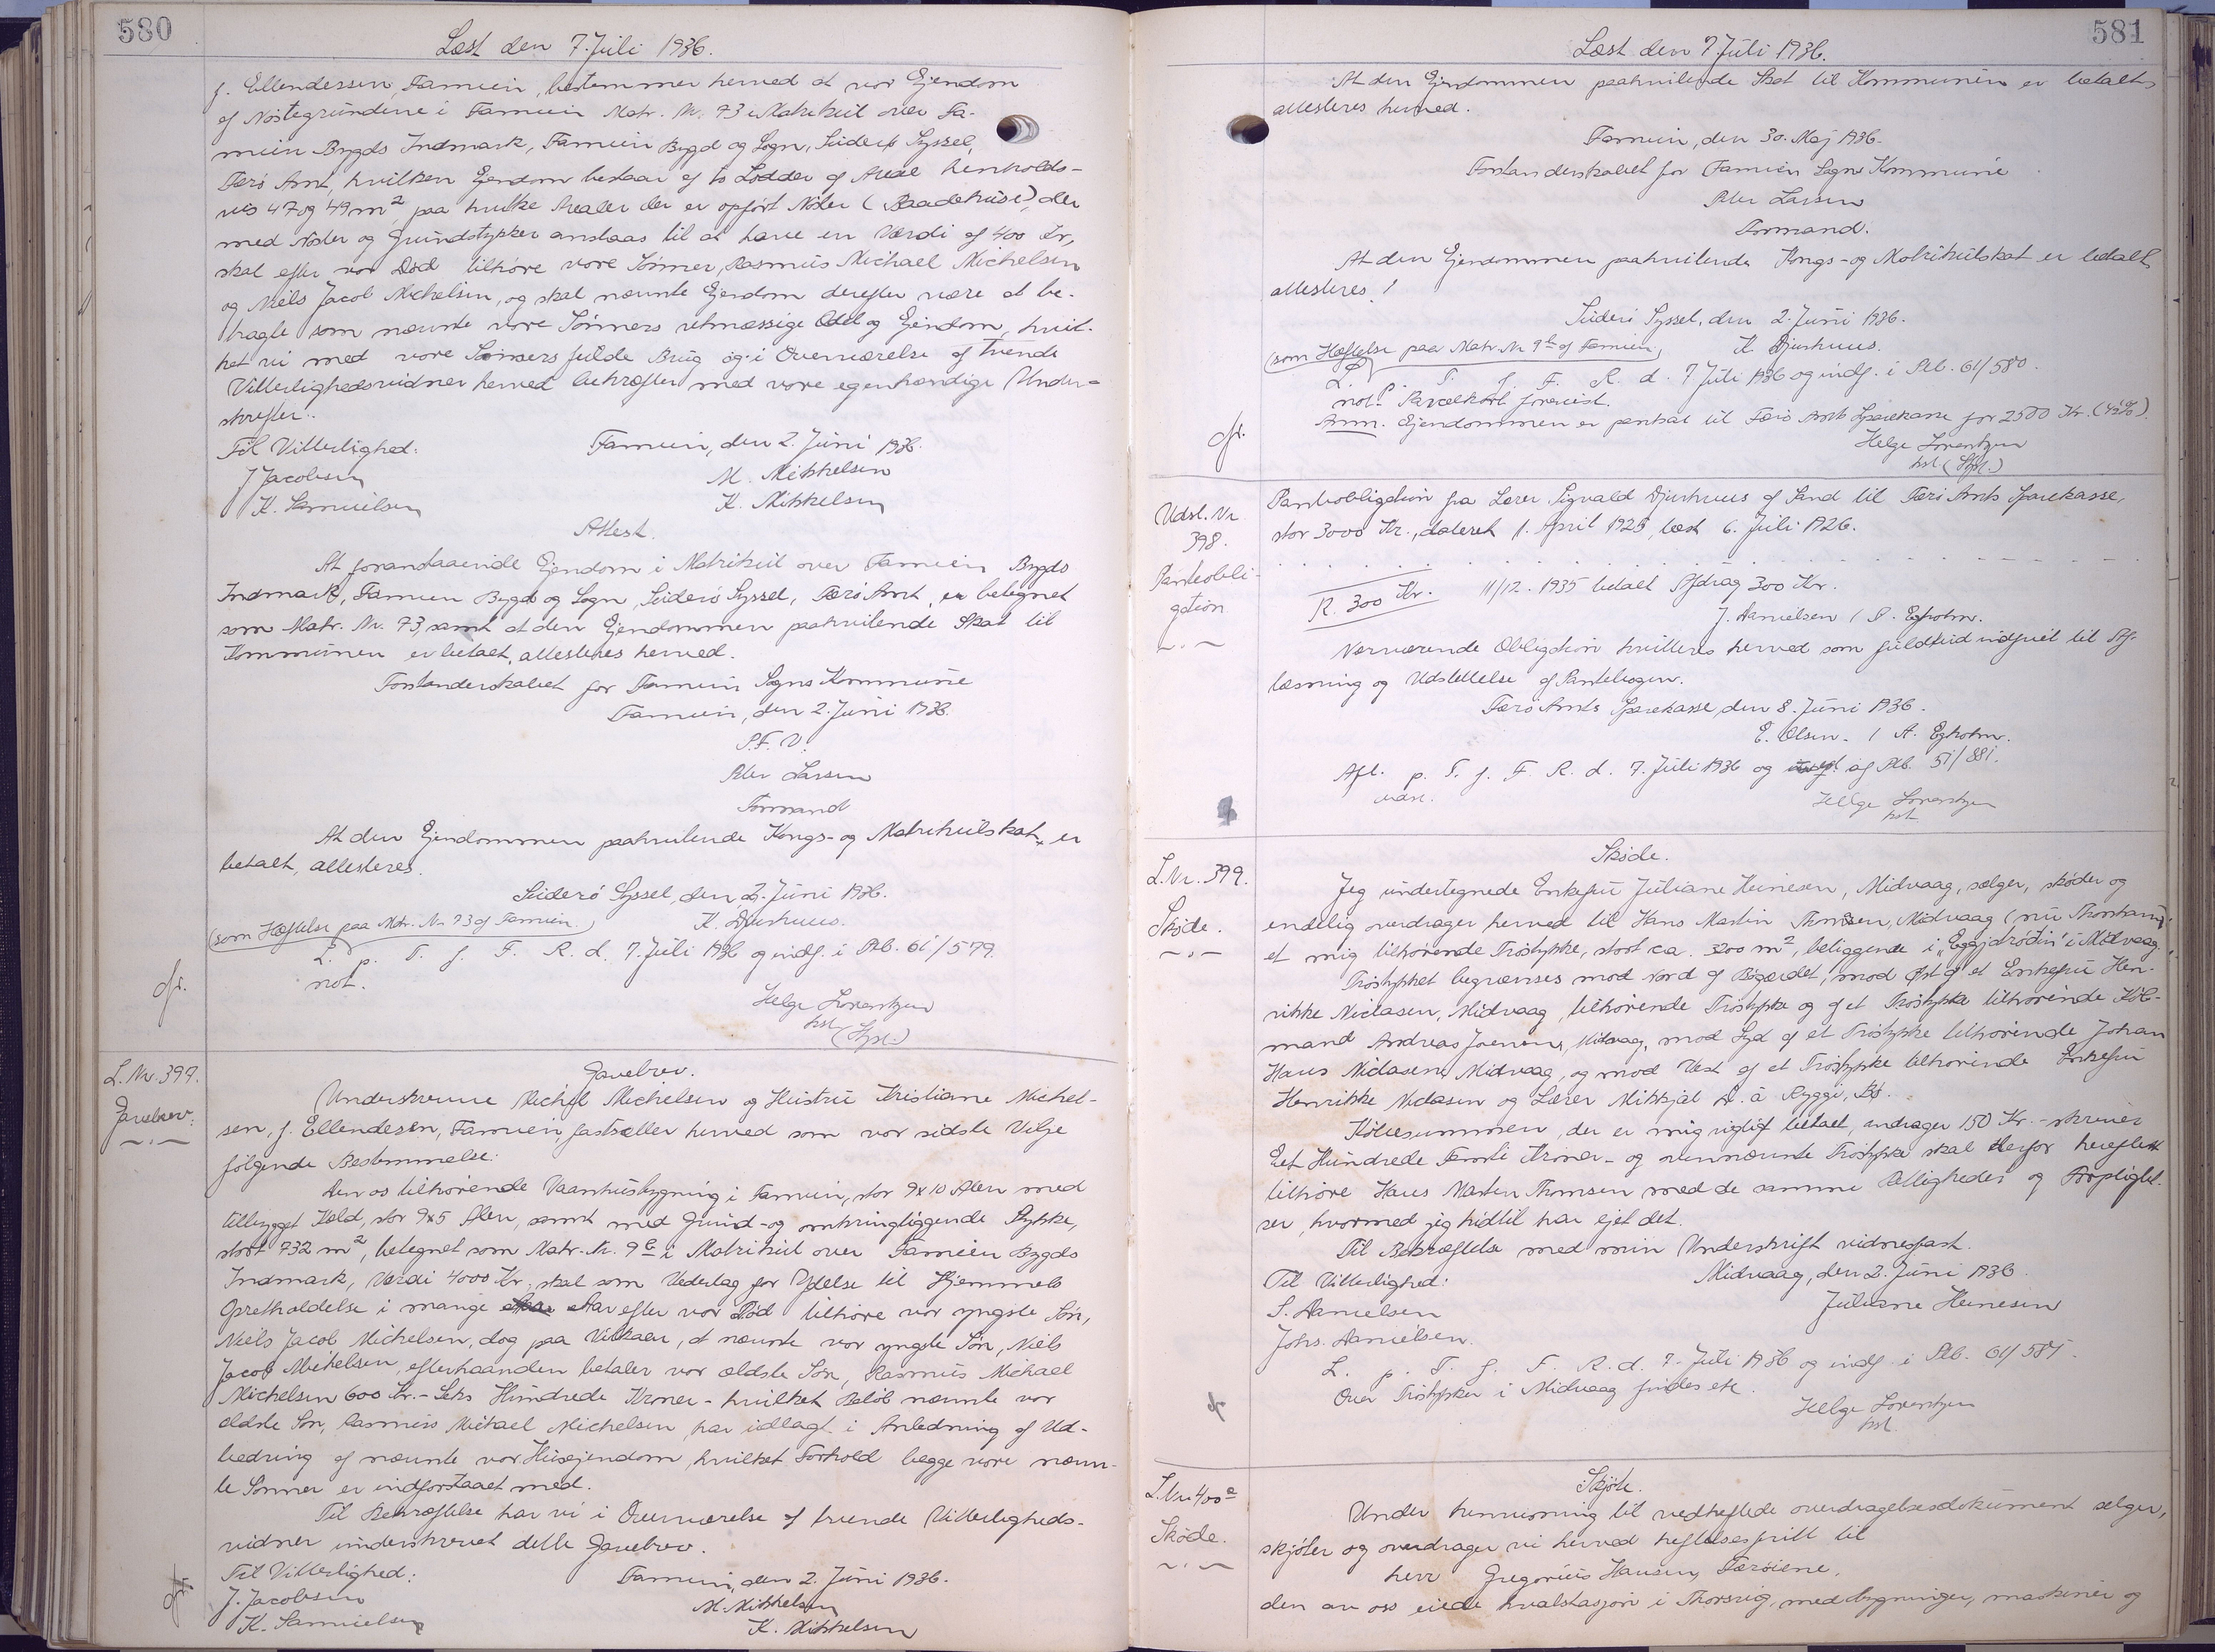 580
Læst den 7. Juli 1936.
f. Ellendessen, Famien, bestemmer herved at vor Ejendom
af Nøstegrundene i Famien Matr. Nr. 73 i Matrikul over Fa-
mien Bygds Indmark, Famien Bygd og Sogn, Suderø Syssel,
Færø Amt, hvilken Ejendom bestaar af to Lodder af Areal henholds-
vis 47 og 49 m², paa hvilke Arealer der er opført Nøster (Baadehuse), der
med Nøster og Grundstykker anslaas til at have en Værdi af 400 Kr,
skal efter vor Død tilhøre vore Sønner, Rasmus Michael Michelsen
og Niels Jacob Michelsen, og skal nævnte Ejendom derefter være at be-
tragte som nævnte vore Sønners retmæssige Odel og Ejendom, hvil-
ket vi med vore Sansers fulde Brug og i Overværelse af tvende
Vitterlighedsvidner herved bekræfter med vore egenhændige Under-
skrifter.
Til Vitterlighed: Famien, den 2. Juni 1936.
J Jacobsen M. Mikkelsen
K. Samuelsen K. Mikkelsen
Attest.
At foranstaaende Ejendom i Matrikul over Famien Bygds
Indmark, Famien Bygd og Sogn, Suderø Syssel, Færø Amt, er betegnet
som Matr. Nr. 73, samt at den Ejendommen paahvilende Skat til
Kommunen er betalt, attesteres herved.
Forstanderskabet for Famien Sogns Kommune
Famien, den 2. Juni 1936.
P. F. V.
Peter Larsen
Formand
At den Ejendommen paahvilende Kongs- og Matrikulskat er
betalt, attesteres.
Suderø Syssel, den 2. Juni 1936.
(som Hæftelse paa Matr. Nr. 73 af Famien.) K. Djurhuus.
L. p. T. f. F. R. d. 7. Juli 1936 og indf. i Ptb. 61/579.
not.
cfr.
Helge Lorentzen
kst.
(Styr.)
L. Nr. 397.
Gavebrev.
Gavebrev.
Underskrevne Michel Michelsen og Hustru Kristiane Michel-
sen, f. Ellendesen, Famien, fastsætter herved som vor sidste Vilje
følgende Bestemmelse:
Den os tilhørende Vaanhusbygning i Famien, stor 9x10 Alen med
tilbygget Kæld, stor 9x5 Alen, samt med Grund- og omkringliggende Stykke,
stort 732 m², betegnet som Matr. Nr. 9 e i Matrikul over Famien Bygds
Indmark, Værdi 4000 Kr. skal som Vederlag for Ydelse til Hjemmets
Opretholdelse i mange Aar efter vor Død tilhøre vor yngste Søn,
Niels Jacob Michelsen, dog paa Vilkaar, at nævnte vor yngste Søn, Niels
Jacob Michelsen, efterhaanden betaler vor ældste Søn, Rasmus Michael
Michelsen 600 Kr. - Seks Hundrede Kroner - hvilket Beløb nævnte vor
ældste Søn, Rasmus Michael Michelsen har udlagt i Anledning af Ud-
bedring af nævnte vor Husejendom, hvilket Forhold begge vore nævn-
te Sønner er indforstaaet med.
Til Bekræftelse har vi i Overværelse af tvende Vitterligheds-
vidner underskrevet dette Gavebrev.
Til Vitterlighed: Famien, den 2. Juni 1936.
J. Jacobsen M. Mikkelsen
K. Samuelsen K. Mikkelsen
cfr.
581
Læst den 7. Juli 1936.
At den Ejendommen paahvilende Skat til Kommunen er betalt,
attesteres herved.
Famien, den 30. Maj 1936.
Forstanderskabet for Famien Sogns Kommune
Peter Larsen
Formand.
At den Ejendommen paahvilende Kongs- og Matrikulskat er betalt,
attesteres!
Suderø Syssel, den 2. Juni 1936.
(som Hæftelse paa Matr. Nr 9 e af Famien) K. Djurhuus.
L. p. T. f. F. R. d. 7 Juli 1936 og indf. i Ptb. 61/580.
not. Parcelkort forevist.
Anm. Ejendommen er pantsat til Færø Amts Sparekasse for 2500 Kr. (4½%).
cfr.
Helge Lorentzen
kst. (Styr.)
Udsl. Nr
398.
Pantobli-
gation
Pantobligation fra Lærer Sigvald Djurhuus af Sand til Færø Amts Sparekasse,
stor 3000 Kr., dateret 1. April 1925, læst 6. Juli 1926.
R. 300 Kr. 11/12. 1935 betalt Afdrag 300 Kr.
J. Danielsen / P. Egholm.
Nærværende Obligation kvitteres herved som fuldtud indfriet til Af-
læsning og Udslettelse af Pantebogen.
Færø Amts Sparekasse, den 8. Juni 1936.
E. Olsen. / A. Egholm.
Afl. p. T. f. F. R. d. 7. Juli 1936 og af Ptb. 51/881.
udsl.
Helge Lorentzen
kst
L. Nr. 399.
Skøde.
Skøde.
Jeg undertegnede Enkefru Juliane Heinesen, Midvaag, sælger, skøder og
endelig overdrager herved til Hans Martin Thomsen, Midvaag (nu Thorshavn)
et mig tilhørende Trøstykke, stort ca. 3200 m², beliggende i "Eggjdrøðin" i Midvaag.
Trøstykket begrænses mod Nord af Bøgærdet, mod Øst af et Enkefru Hen-
rikke Niclasen, Midvaag, tilhørende Trøstykke og af et Trøstykke tilhørende Køb-
mand Andreas Joensen, Midvaag, mod Syd af et Trøstykke tilhørende Johan
Hans Niclasen, Midvaag, og mod Vest af et Trøstykke tilhørende Enkefru
Henrikke Niclasen og Lærer Mikkjal D. á Ryggi, Bø.
Købesummen, der er mig rigtigt betalt, andrager 150 Kr. - skriver
Eet Hundrede Femti Kroner - og ovennævnte Trøstykke skal derfor herefter
tilhøre Hans Martin Thomsen med de samme Rettigheder og Forpligtel-
ser, hvormed jeg hidtil har ejet det.
Til Bekræftelse med min Underskrift vidnesfast.
Til Vitterlighed: Midvaag, den 2. Juni 1936
S. Danielsen Juliane Heinesen
Johs. Danielsen.
L. p. T. f. F. R. d. 7. Juli 1936 og indf. i Ptb. 61/581.
Over Trøstykker i Midvaag findes etc.
Helge Lorentzen
kst.
L. Nr. 400 a
Skøde.
Skjøte.
Under henvisning til vedheftede overdragelsesdokument selger,
skjøter og overdrager vi herved heftelsesfritt til
herr Gregorius Hansen, Færøiene,
den av oss eiede hvalstasjon i Thorsvig, med bygninger, maskiner og